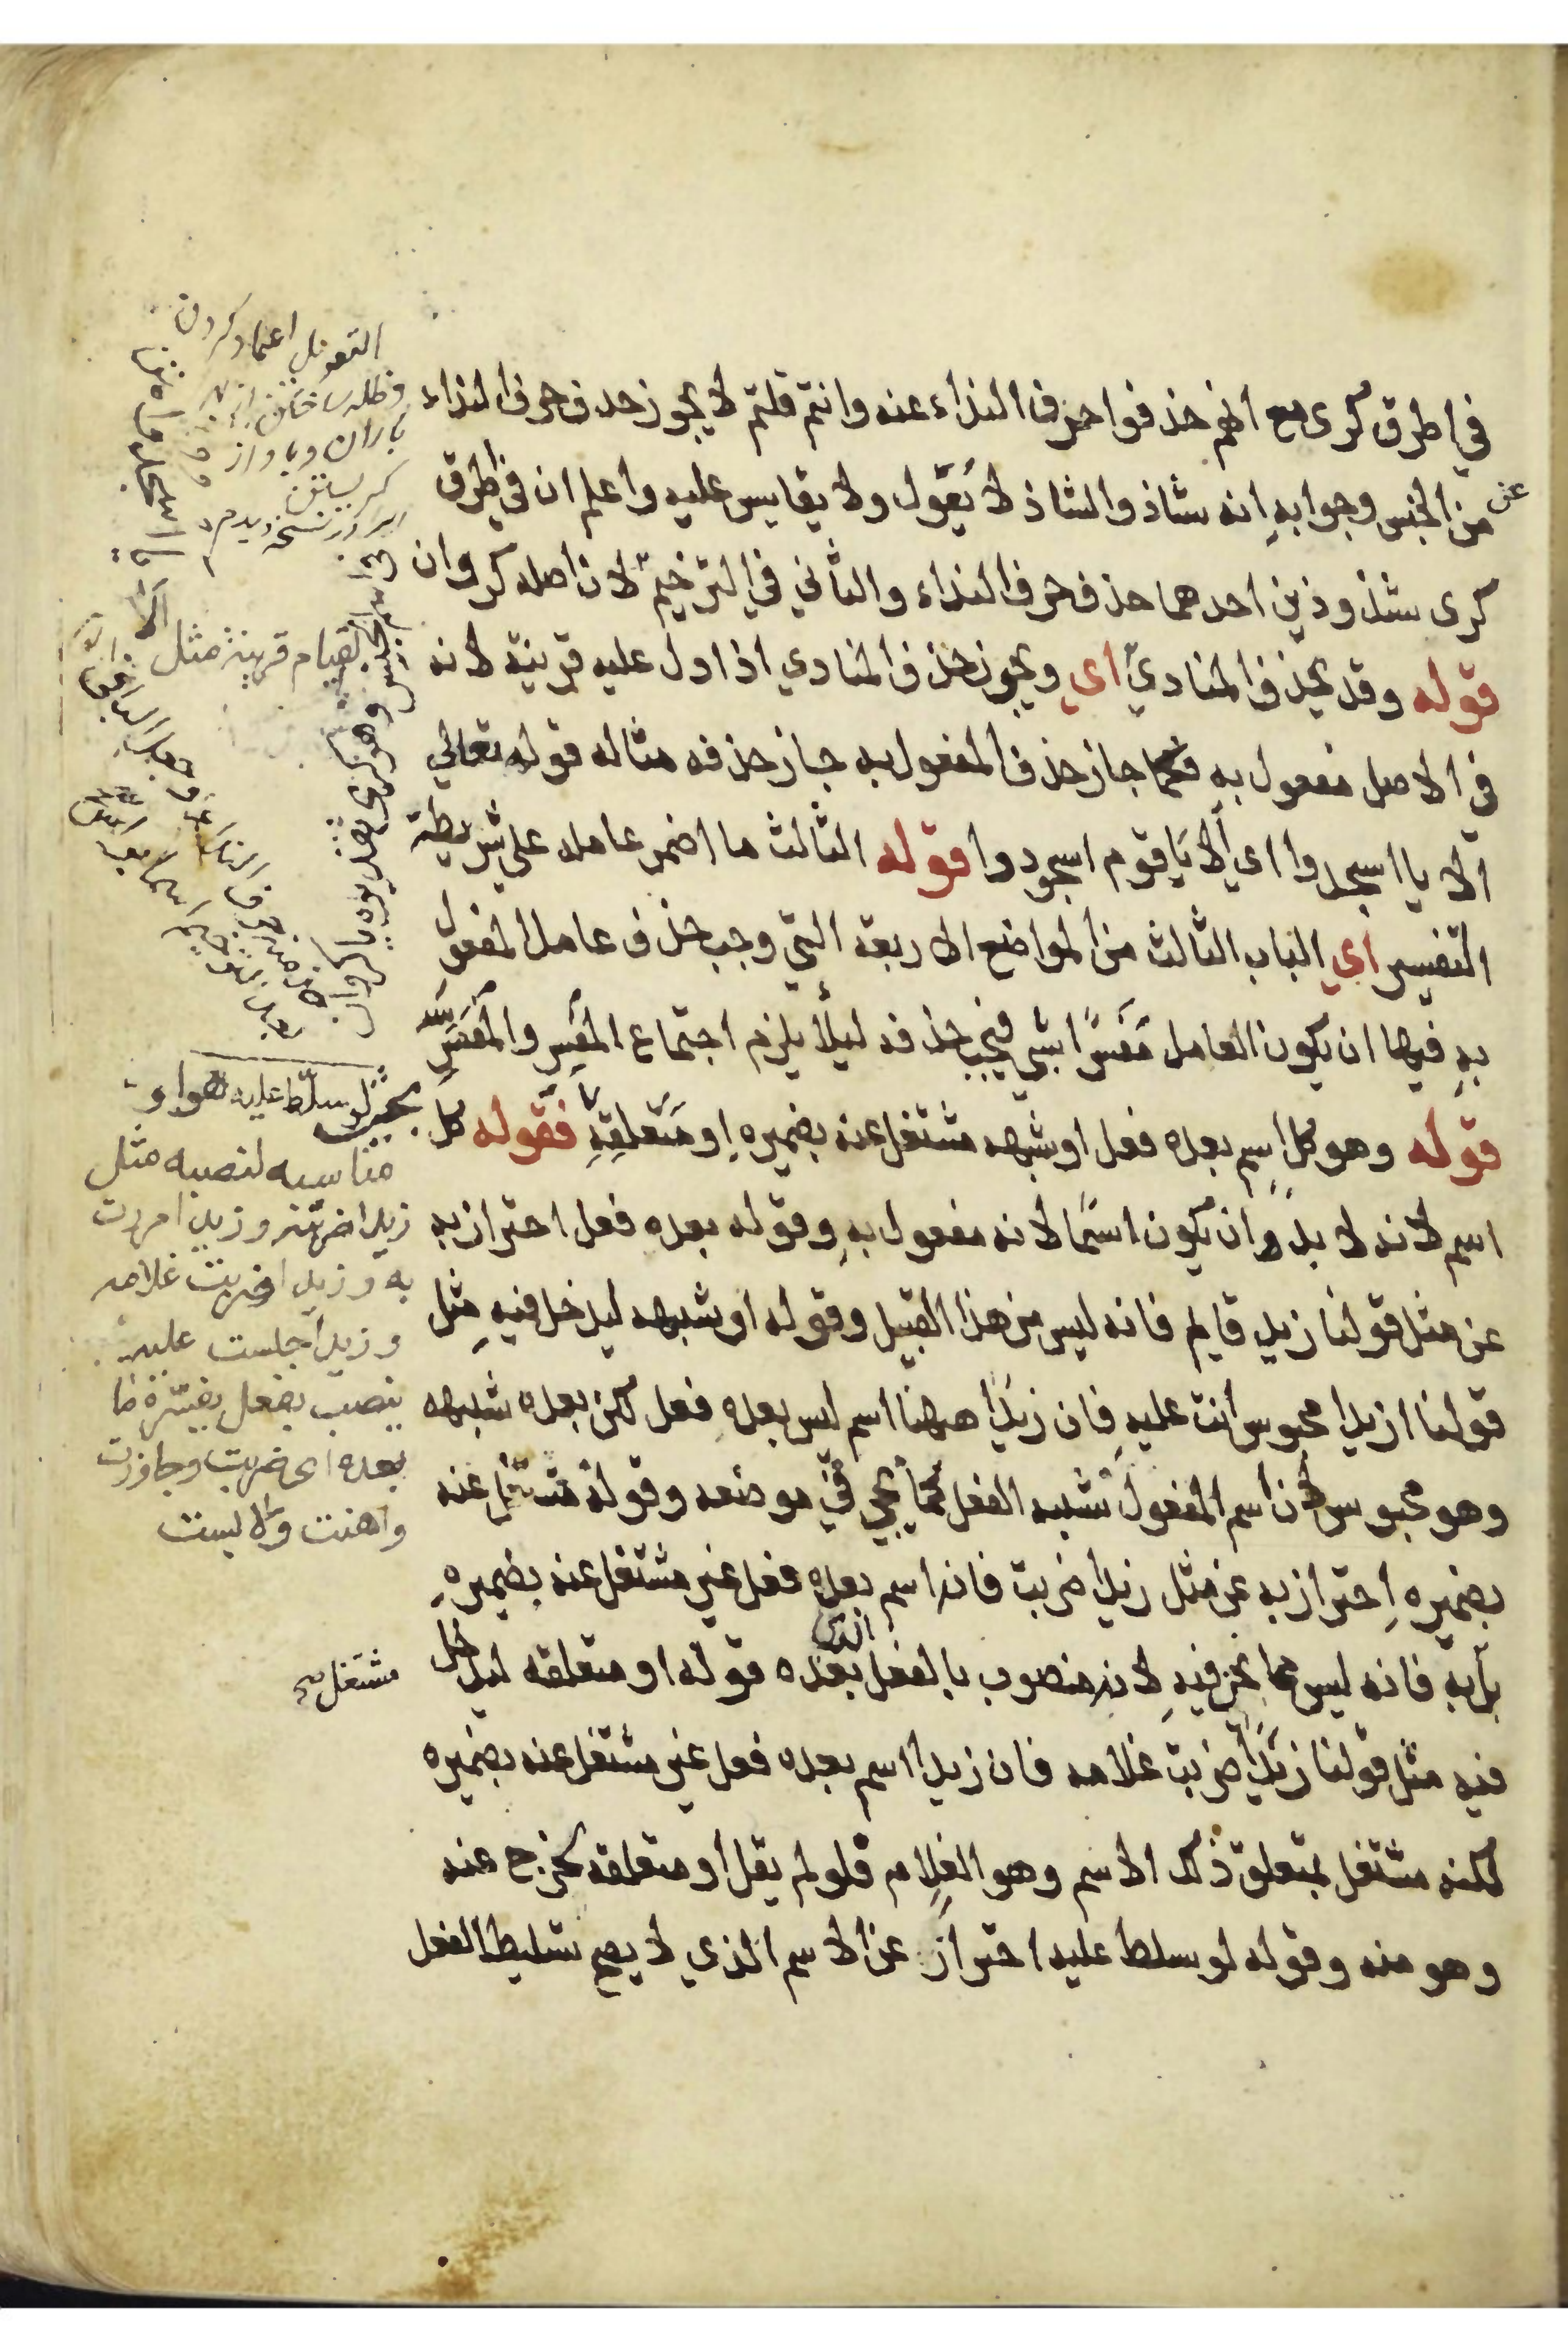 في اطرق كرى مع انهم حذفوا حرف النداء عنه وانتم قلتم لا يجوز حذف حرف النداء
عن
من الجنس وجوابه انه شاذ والشاذ لا يُعَوّل ولا يقايس عليه واعلم ان في اطرق
كرى شذوذين احدهما حذف حرف النداء والثاني في الترخيم لان اصله كروان
قوله وقد يحذف المنادي اي ويجوز حذف المنادي اذا دل عليه قرينة لانه
في الاصل مفعول به فكما جاز حذف المفعول به جاز حذفه مثاله قوله تعالي
ألا يا اسجدوا اي ألا يَا قوم اسجودوا قوله الثالث ما اضمر عامله على شريطة
التفسير اي الباب الثالث من المواضع الاربعة التي وجب حذف عامل المفعول
به فيها ان يكون العامل مفسرًا بشي فيجب حذفه ليلأ يلزم اجتماع المفسِر والمفسَّر
قوله وهو كل اسم بعده فعل او شبهه مشتغل عنه بضميره او متعلقِهِ فقوله كل
اسم لانه لا بد وان يكون اسمًا لانه مفعول به وقوله بعده فعل احتراز به
عن مثل قولنا زيد قايم فانه ليس من هذا القبيل وقوله او شبهه ليدخل فيه مثل
قولنا ازيدا محبوس انت عليه فان زيدًا ههنا اسم ليس بعده فعل لكن بعده شبهه
وهو محبوس لان اسم المفعول شبه الفعل كما يجي في موضعه وقوله مشتغل عنه
بضميره احتراز به عن مثل زيدا ضربت فانه اسم بعده فعل غير مشتغل عنه بضميره
بل به فانه ليس مما نحن فيه لانه منصوب بالفعل الذي بعده قوله او متعلقه ليدخل
فيه مثل قولنا زيدًا ضربت غلامه فان زيدا اسم بعده فعل غير مشتغل عنه بضميره
لكنه مشتغل بمتعلق ذلك الاسم وهو الغلام فلو لم يقل او متعلقه لخرج عنه
وهو منه وقوله لو سلط عليه احتراز عن الاسم الذي لا يصح تسليط الفعل
التعويل اعتماد كردن
باران وباواز
كريستن
لقيام قرينة مثل
بحيث لو سلّط عليه هو او
مناسبه لنصبه مثل
زيدا ضربته وزيدا مررت
به وزيدا ضربت غلامه
وزيدا حبست عليه
ينصب بفعل يفسّره ما
بعده اى ضربت وجاوزت
واهنت ولابست
مشتغل